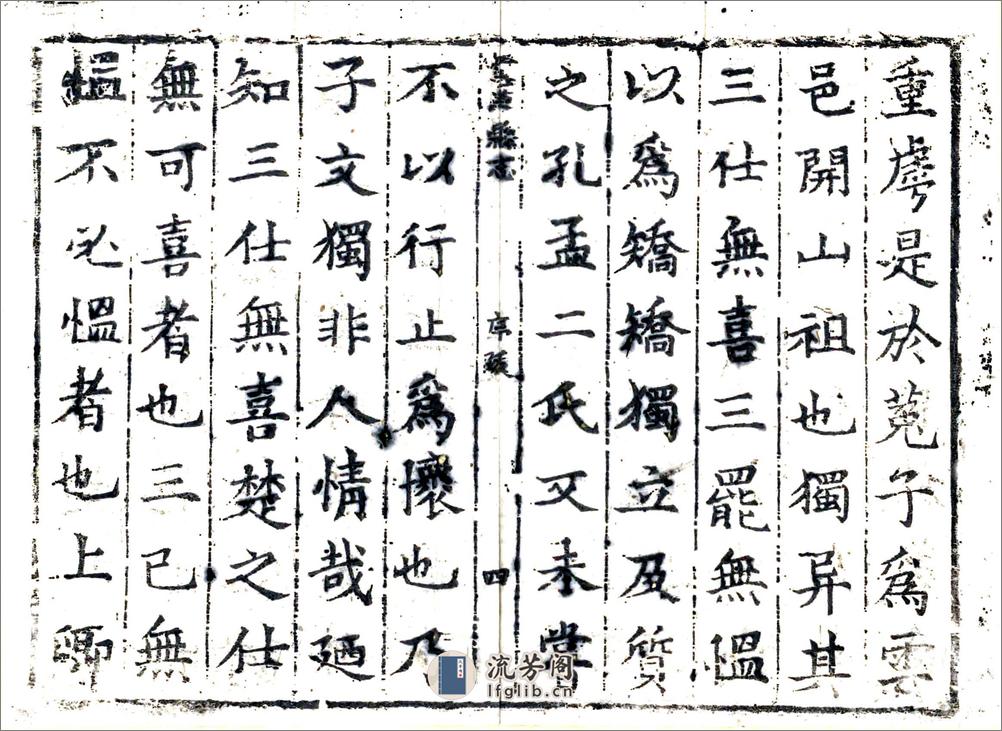 重虖是於菟子爲雲
邑開山祖也獨异其
三仕無喜三罷無愠
以爲矯矯獨立及質
之孔孟二氏又未嘗
縣志 序 四
不以行止爲懷也乃
子文獨非人情哉廼
知三仕無喜楚之仕
無可喜者也三已無
愠不必愠者也上卿
流芳阁
lfglib.cn